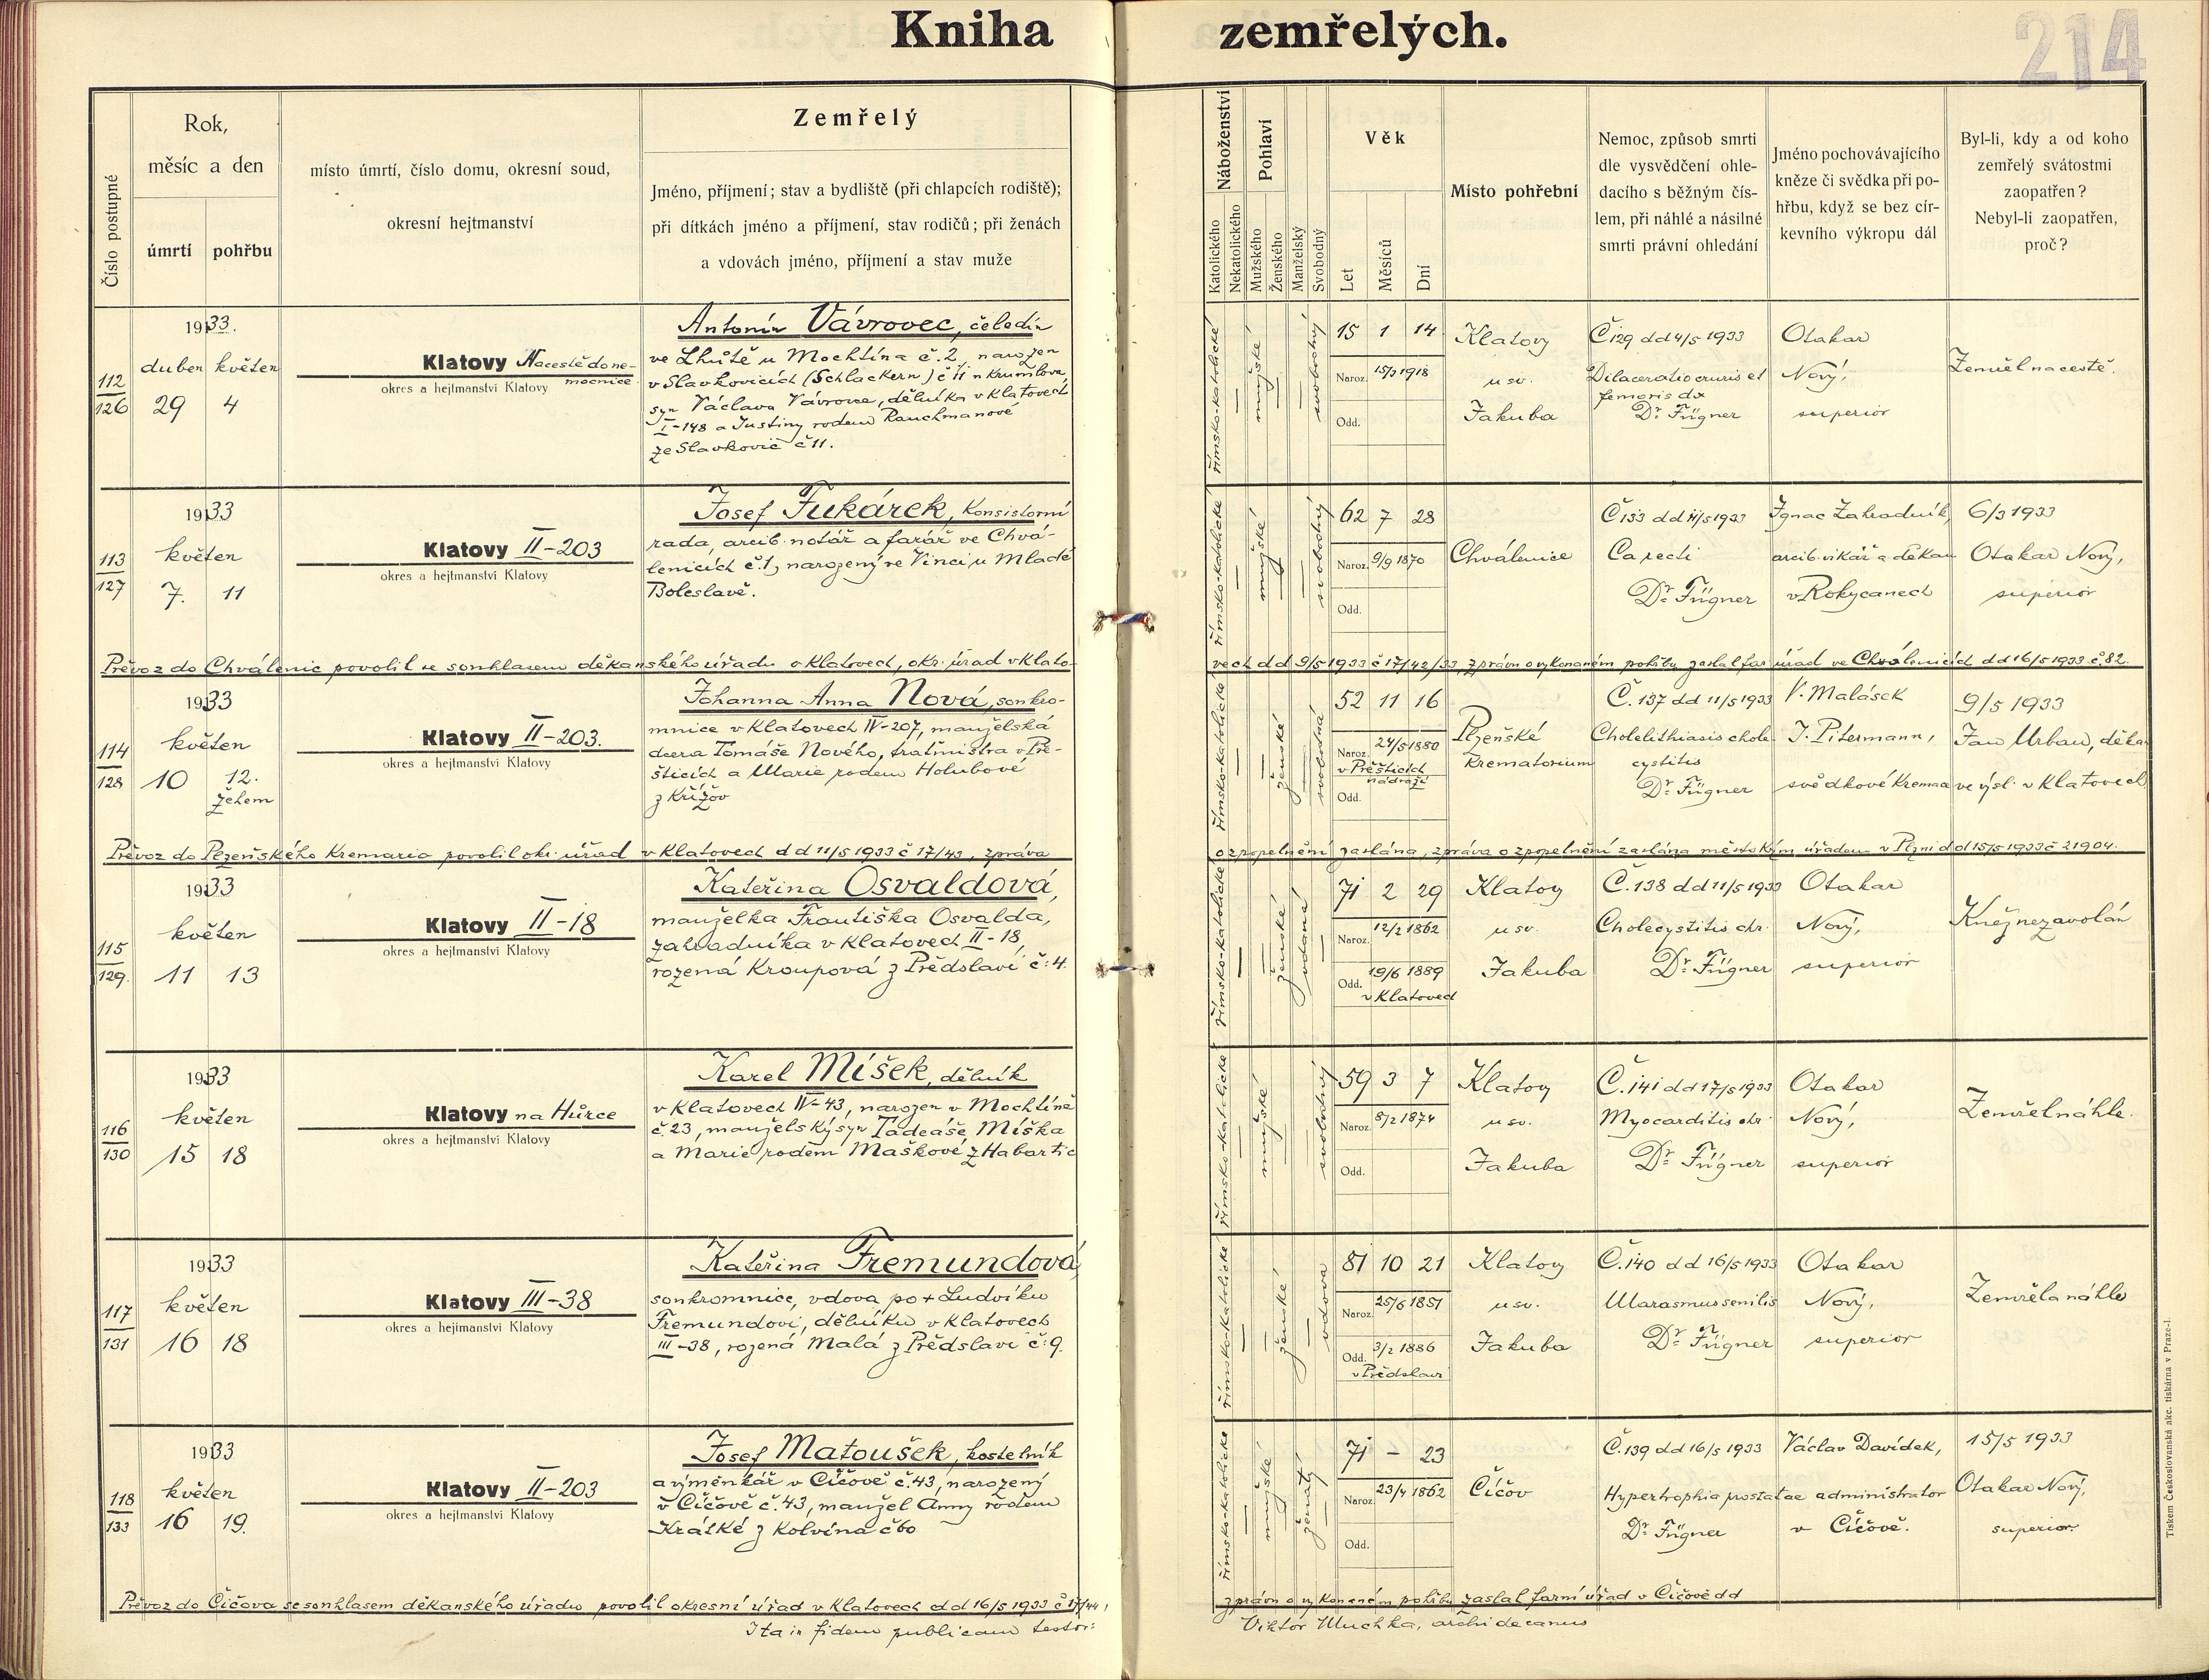 Kniha zemřelých.
214
Číslo postupné
Rok,
měsíc a den
úmrtí
pohřbu
místo úmrtí, číslo domu, okresní soud,
okresní hejtmanství
Zemřelý
Jméno, příjmení; stav a bydliště (při chlapcích rodiště);
při dítkách jméno a příjmení, stav rodičů; při ženách
a vdovách jméno, příjmení a stav muže
Náboženství
Katolického
Nekatolického
Pohlaví
Mužského
Ženského
Manželský
Svobodný
Věk
Let
Měsíců
Dní
Místo pohřební
Nemoc, způsob smrti
dle vysvědčení ohle-
dacího s běžným čís-
lem, při náhlé a násilné
smrti právní ohledání
Jméno pochovávajícího
kněze či svědka při po-
hřbu, když se bez cír-
kevního výkropu dál
Byl-li, kdy a od koho
zemřelý svátostmi
zaopatřen?
Nebyl-li zaopatřen,
proč?
112
126
1933.
duben květen
29 4
Klatovy Na cestě do ne-
mocnice
okres a hejtmanství Klatovy
Antonín Vávrovec, čeledín
ve Lhůtě u Mochtína č. 2, narozen
v Slavkovicích (Schlackern) č 11 n Krumlova
syn Václava Vávrovce, dělníka v Klatovech
I-148 a Justiny rodem Rauchmanové
ze Slavkovic č 11.
římsko-katolické
mužské
svobodný
15 1 14
Naroz. 15/3 1918
Odd.
Klatovy
u sv.
Jakuba
Č 129 dd 4/5 1933
Dilaceratio cruris et
femoris dx
Dr. Fügner
Otakar
Nový,
superior
Zemřel na cestě.
113
127
1933
květen
7. 11
Klatovy II-203
okres a hejtmanství Klatovy
Josef Fukárek, Konsistorní
rada, arcib. notář a farář ve Chvá-
lenicích č. 1, narozený ve Vinci u Mladé
Boleslavě.
římsko-katolické
mužské
svobodný
62 7 28
Naroz. 9/9 1870
Odd.
Chválenice
Č 133 dd 11/5 1933
Ca recti
Dr. Fügner
Ignac Zahradník,
arcib. vikář a děkan
v Rokycanech
6/3 1933
Otakar Nový,
superior
Převoz do Chválenic povolil se souhlasem děkanského úřadu v Klatovech, okr. úřad v Klato-
vech dd 9/5 1933 č 17/42/33, zprávu o vykonaném pohřbu zaslal far. úřad ve Chválenicích dd 16/5 1933 č. 82.
114
128
1933
květen
10 12.
žehem
Klatovy II-203.
okres a hejtmanství Klatovy
Johanna Anna Nová, soukro-
mnice v Klatovech IV-207, manželská
dcera Tomáše Nového, traťmistra v Pře-
šticích a Marie rodem Holubové
z Křížov
římsko-katolické
ženské
svobodná
52 11 16
Naroz. 24/5 1880
v Přešticích
nádraží
Odd.
Plzeňské
Krematorium
Č. 137 dd 11/5 1933
Cholelithiasis chole-
cystitis
Dr. Fügner
V. Malásek
J. Pitermann,
svědkové Krema
9/5 1933
Jan Urban, děkan
ve výsl. v Klatovech
Převoz do Plzeňského Kremaria povolil okr. úřad v Klatovech dd 11/5 1933 č 17/43, zpráva
o zpopelnění zaslána, zpráva o zpopelnění zaslána městským úřadem v Plzni dd 15/5 1933 č 21904.
115
129.
1933
květen
11 13
Klatovy II-18
okres a hejtmanství Klatovy
Kateřina Osvaldová,
manželka Františka Osvalda,
zahradníka v Klatovech II-18,
rozená Kroupová z Předslaví č: 4.
římsko-katolické
ženské
vdaná
71 2 29
Naroz. 12/2 1862
Odd. 19/6 1889
v Klatovech
Klatovy
u sv.
Jakuba
Č. 138 dd 11/5 1933
Cholecystitis chr.
Dr. Fügner
Otakar
Nový,
superior
Kněz nezavolán
116
130
1933
květen
15 18
Klatovy na Hůrce
okres a hejtmanství Klatovy
Karel Míšek, dělník
v Klatovech IV-43, narozen v Mochtíně
č. 23, manželský syn Tadeáše Míška
a Marie rodem Maškové z Habartic
římsko-katolické
mužské
svobodný
59 3 7
Naroz. 8/2 1874
Odd.
Klatovy
u sv.
Jakuba
Č. 141 dd 17/5 1933
Myocarditis chr.
Dr. Fügner
Otakar
Nový,
superior
Zemřel náhle.
117
131
1933
květen
16 18
Klatovy III-38
okres a hejtmanství Klatovy
Kateřina Fremundová,
soukromnice, vdova po + Ludvíku
Fremundovi, dělníku v Klatovech
III-38, rozená Malá z Předslaví č: 9.
římsko-katolické
ženské
vdova
81 10 21
Naroz. 25/6 1851
Odd. 3/2 1886
v Předslavi
Klatovy
u sv.
Jakuba
Č. 140 dd 16/5 1933
Marasmus senilis
Dr. Fügner
Otakar
Nový,
superior
Zemřela náhle
118
133
1933
květen
16 19.
Klatovy II-203
okres a hejtmanství Klatovy
Josef Matoušek, kostelník
a výměnkář v Číčově č. 43, narozený
v Číčově č. 43, manžel Anny rodem
Krátké z Kolvína č 60
římsko-katolické
mužské
ženatý
71 – 23
Naroz. 23/4 1862
Odd.
Číčov
Č. 139 dd 16/5 1933
Hypertrophia prostatae
Dr. Fügner
Václav Davídek,
administrator
v Číčově.
15/5 1933
Otakar Nový,
superior.
Převoz do Číčova se souhlasem děkanského úřadu povolil okresní úřad v Klatovech dd 16/5 1933 č 17/44,
zprávu o vykonaném pohřbu zaslal farní úřad v Číčově dd
Ita in fidem publicam testor:
Viktor Muchka, archidecanus
Tiskem Českoslovanská akc. tiskárna v Praze-I.